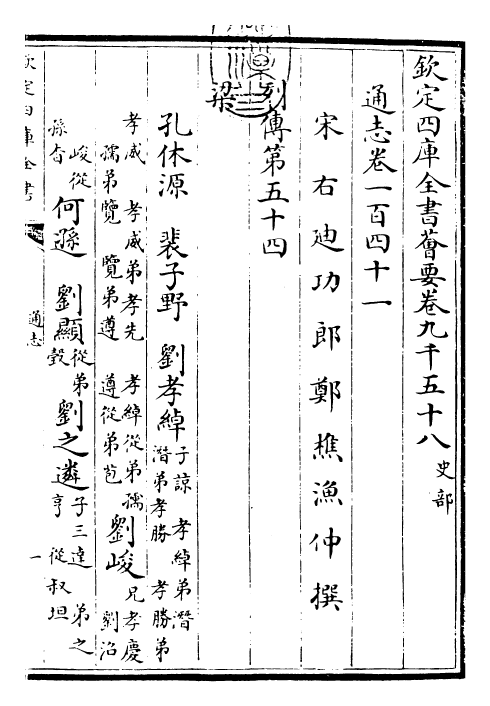 欽定四庫全書薈要卷九千五十八 史部
通志卷一百四十一
宋右廸功郎鄭樵漁仲撰
列傳第五十四
梁
孔休源 裴子野 劉孝綽 子諒 孝綽弟潛 潛弟孝勝 孝勝弟
孝威 孝威弟孝先 孝綽從弟孺 孺弟覽 覽弟遵 遵從弟苞 劉峻 兄孝慶 劉沼
峻從孫杳 何遜 劉顯 從弟瑴 劉之遴 子三達 弟之亨 從叔坦
欽定四庫全書
通志
一